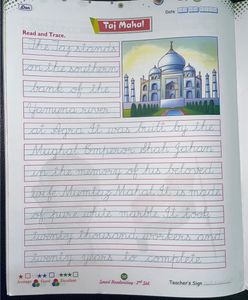 Date
Taj Mahal
Read and Trace.
The Taj stands
on the southern
bank of the
Yamuna river
at Agra. It was built by the
Mughal Emperor Shah Jahan
in the memory of his beloved
wife Mumtaz Mahal. It is made
of pure white marble. It took
twenty thousand workers and
twenty years to complete
Average Good Excellent
Smart Handwriting - 3rd Std.
Teacher's Sign